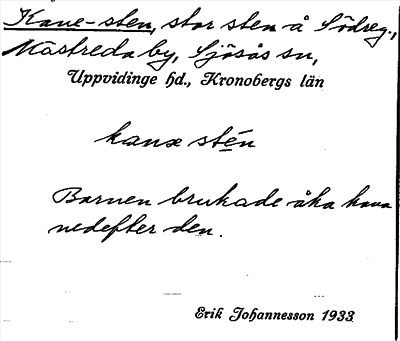 Kane-sten, stor sten å Södreg.,
Mästreda by, Sjösås sn,
Uppvidinge hd., Kronobergs län
kanæ stén
Barnen brukade åka kana
nedefter den.
Erik Johannesson 1933